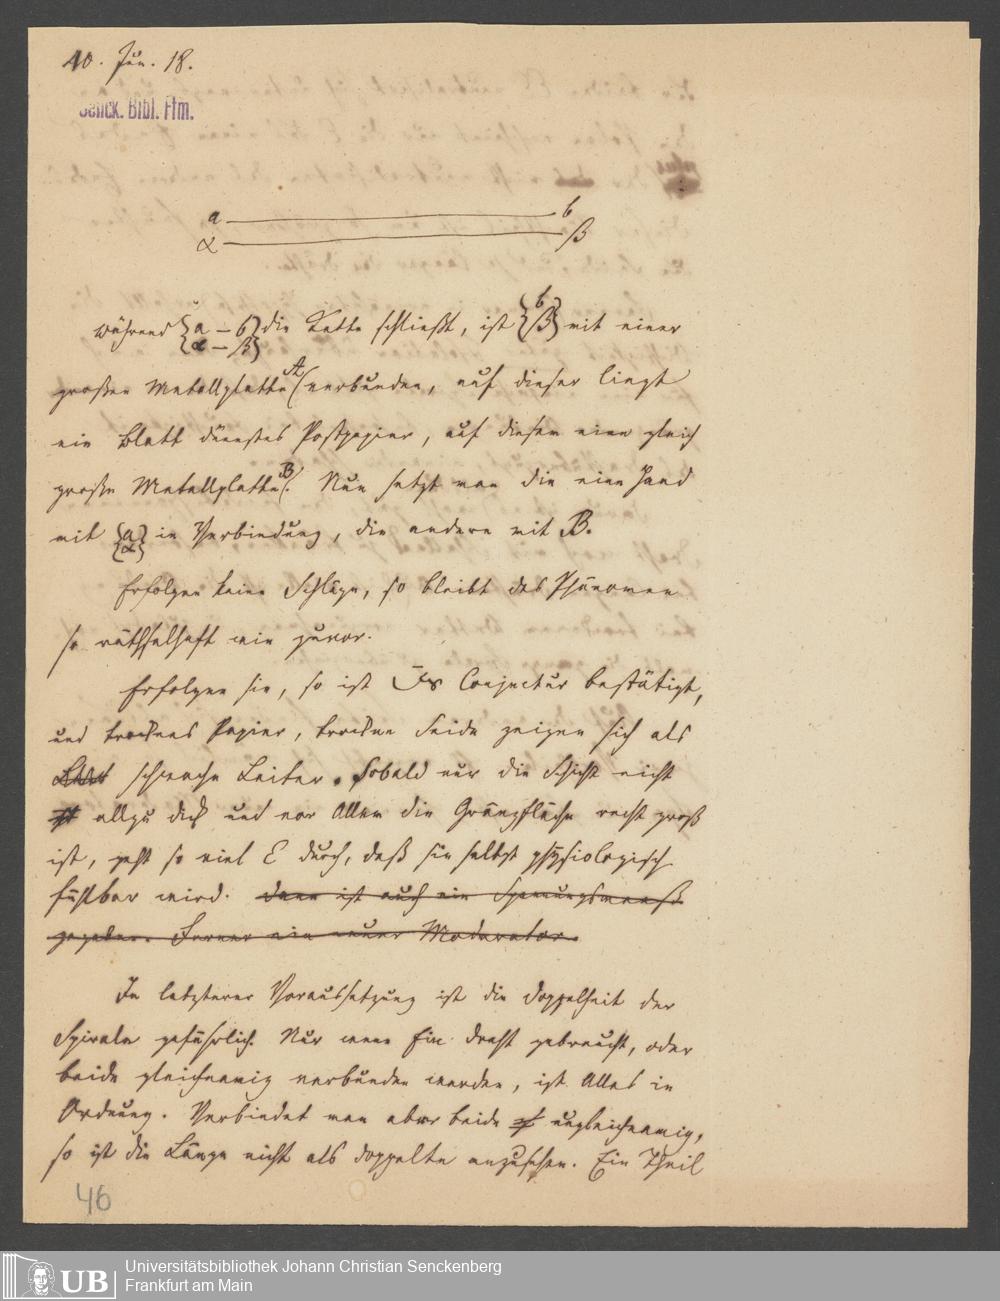 40. Jun. 18.
Senck. Bibl. Ffm.
a b
α β
während {a – b / α – β} die Kette schließt, ist {b / β} mit einer
großen Metallplatte A verbunden, auf dieser liegt
ein Blatt dünnstes Postpapier, auf diesem eine gleich
große Metallplatte B. Nun setzt man die eine Hand
mit {a / α} in Verbindung, die andere mit B.
Erfolgen keine Schläge, so bleibt das Phänomen
so räthselhaft wie zuvor.
Erfolgen sie, so ist Conjectur bestätigt,
und trocknes Papier, trockne Seide zeigen sich als
schwache Leiter. Sobald nur die Schicht nicht
allzu dick und vor Allem die Gränzfläche recht groß
ist, geht so viel E durch, daß sie selbst physiologisch
fühlbar wird. dann ist auch ein Spannungsmaaß
gegeben. Ferner ein neuer Moderator.
In letzterer Voraussetzung ist die Doppelheit der
Spirale gefährlich. Nur wenn Ein Draht gebraucht, oder
beide gleichnamig verbunden werden, ist Alles in
Ordnung. Verbindet man aber beide ungleichnamig,
so ist die Länge nicht als doppelte anzusehen. Ein Theil
46
UB
Universitätsbibliothek Johann Christian Senckenberg
Frankfurt am Main